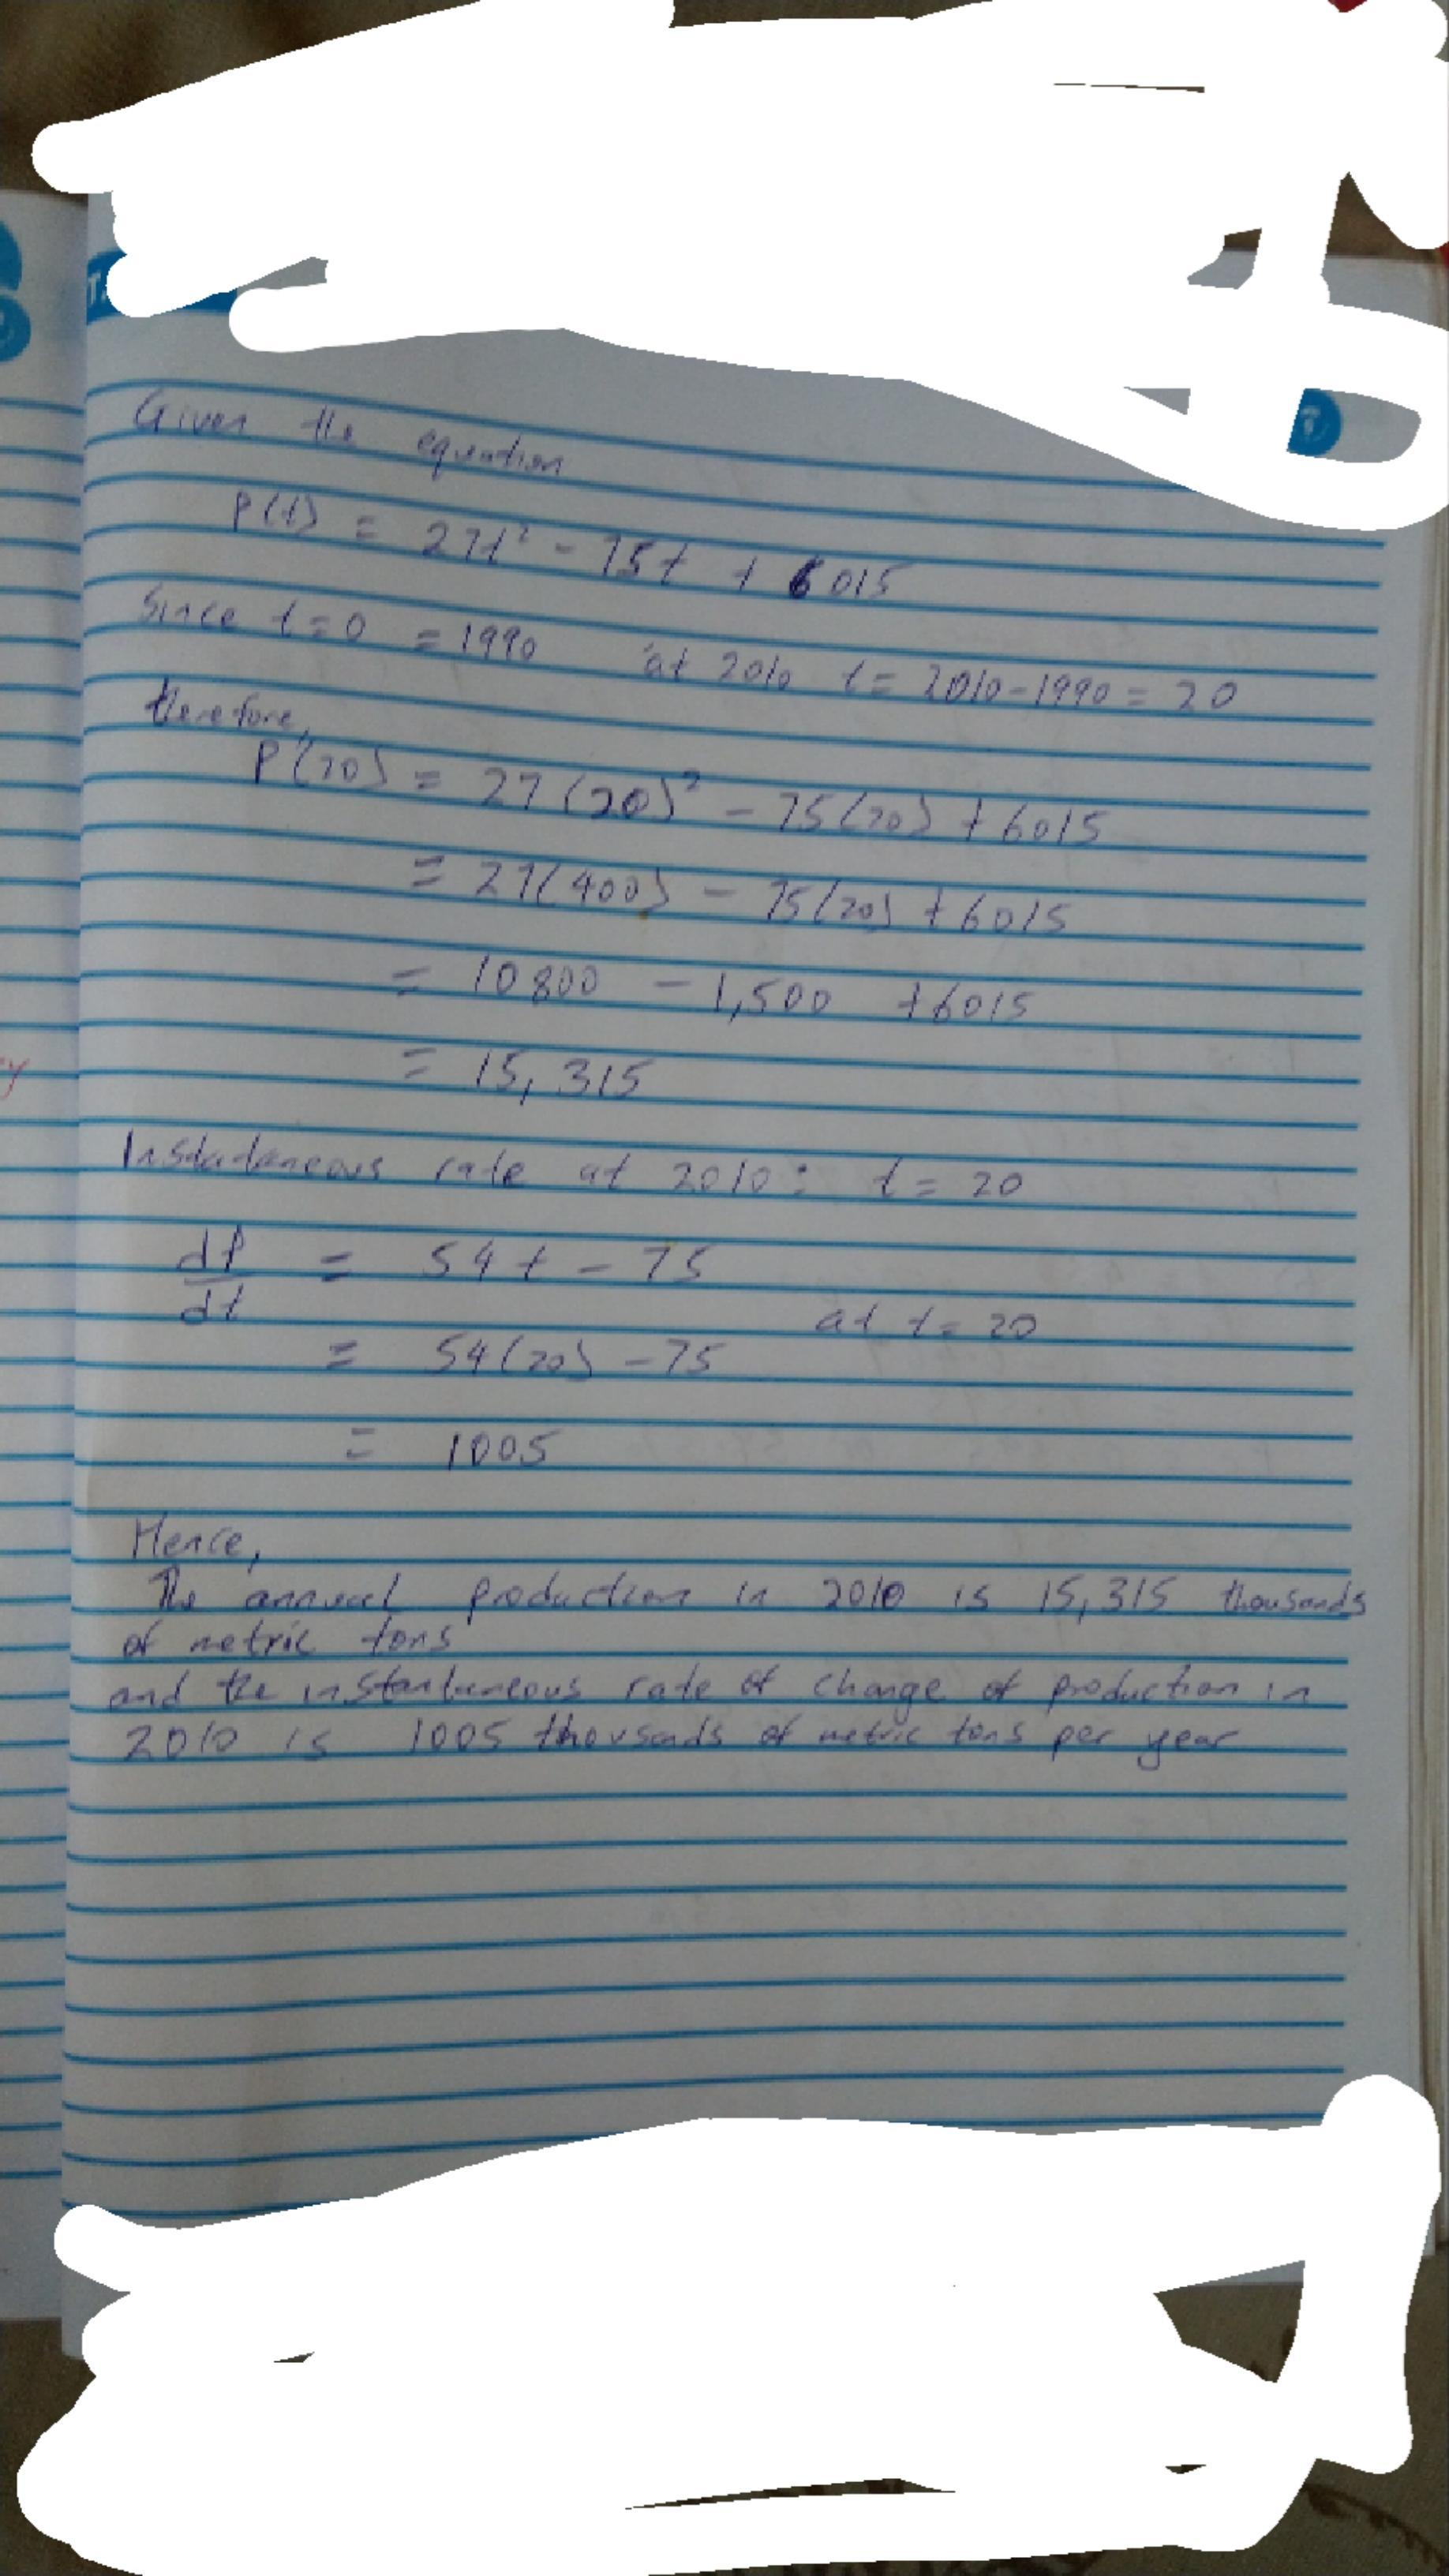 Given the equation
P(t) = 27t² - 75t + 6015
Since t=0 = 1990 at 2010 t= 2010-1990 = 20
therefore,
P(20) = 27(20)² - 75(20) + 6015
= 27(400) - 75(20) + 6015
= 10800 - 1,500 + 6015
= 15,315
Instantaneous rate at 2010: t= 20
dP/dt = 54t - 75
at t= 20
= 54(20) - 75
= 1005
Hence,
The annual production in 2010 is 15,315 thousands
of metric tons
and the instantaneous rate of change of production in
2010 is 1005 thousands of metric tons per year